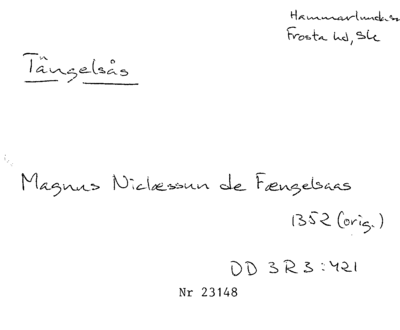 Hammarlunda sn
Frosta hd, Sk
Tängelsås
Magnus Niclæssun de Fængelsaas
1352 (orig.)
DD 3 R 3 : 421
Nr 23148